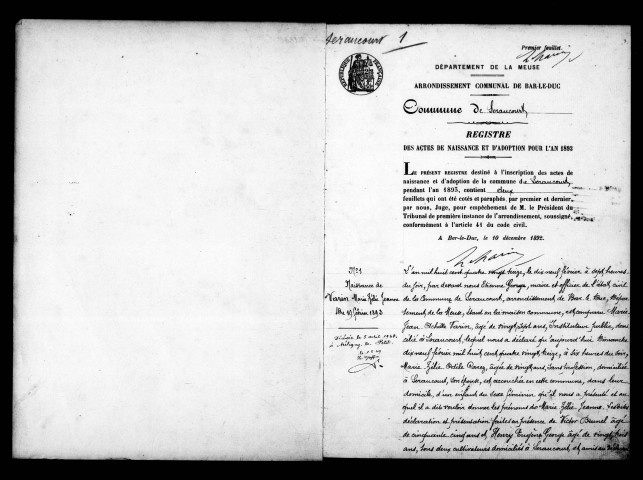 Serancourt 1
Premier feuillet.
RÉPUBLIQUE FRANÇAISE
DÉPARTEMENT DE LA MEUSE
ARRONDISSEMENT COMMUNAL DE BAR-LE-DUC
Commune de Seraucourt
REGISTRE
DES ACTES DE NAISSANCE ET D'ADOPTION POUR L'AN 1892
LE PRÉSENT REGISTRE destiné à l'inscription des actes de
naissance et d'adoption de la commune de Seraucourt
pendant l'an 1893, contient deux
feuillets qui ont été cotés et paraphés, par premier et dernier,
par nous, Juge, pour empêchement de M. le Président du
Tribunal de première instance de l'arrondissement, soussigné,
conformément à l'article 41 du code civil.
A Bar-le-Duc, le 10 décembre 1892.
N° 1
Naissance de
Varin Marie Zélie Jeanne
19 février 1893
Décédée 5 avril 1968
à
L'an mil huit cent quatre vingt treize, le dix neuf février à sept heures
du soir, par devant nous Etienne George, maire et officier de l'état civil
de la Commune de Seraucourt, arrondissement de Bar-le-Duc, dépar-
tement de la Meuse, étant en la maison commune, est comparu Marie
Jean Achille Varin, âgé de vingt sept ans, Instituteur public, domi-
cilié à Seraucourt, lequel nous a déclaré qu'aujourd'hui Dimanche
dix neuf février mil huit cent quatre vingt treize, à six heures du soir,
Marie Zélie Odile, âgée de vingt ans, sans profession, domiciliée
à Seraucourt, son épouse, est accouchée en cette commune, dans leur
domicile, d'un enfant du sexe féminin qu'il nous a présenté et au-
quel il a dit vouloir donner les prénoms de Marie Zélie Jeanne. Lesdites
déclaration et présentation faites en présence de Victor Brunel âgé
de cinquante cinq ans et Henry Eugène George âgé de vingt huit
ans, tous deux cultivateurs domiciliés à Seraucourt et amis